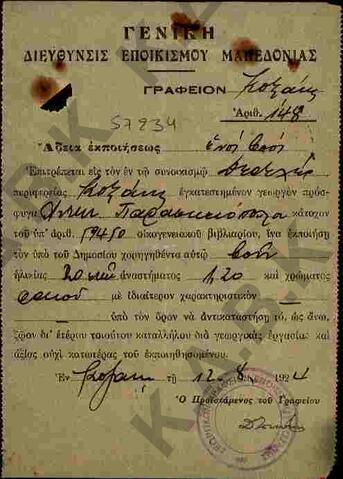 ΓΕΝΙΚΗ
ΔΙΕΥΘΥΝΣΙΣ ΕΠΟΙΚΙΣΜΟΥ ΜΑΚΕΔΟΝΙΑΣ
ΓΡΑΦΕΙΟΝ Κοζάνης
Ἀριθ. 148
57234
Ἄδεια ἐκποιήσεως ἑνός βοός
Ἐπιτρέπεται εἰς τὸν ἐν τῷ συνοικισμῷ
περιφερείας Κοζάνης ἐγκατεστημένον γεωργὸν πρόσ-
φυγα κάτοχον
τοῦ ὑπ' ἀριθ. 59450 οἰκογενειακοῦ βιβλιαρίου, ἵνα ἐκποιήσῃ
τὸν ὑπὸ τοῦ Δημοσίου χορηγηθέντα αὐτῷ βοῦν
ἡλικίας ἀναστήματος 1,20 καὶ χρώματος
μὲ ἰδιαίτερον χαρακτηριστικὸν
ὑπὸ τὸν ὅρον νὰ ἀντικαταστήσῃ τό, ὡς ἄνω,
ζῷον δι' ἑτέρου τοιούτου καταλλήλου διὰ γεωργικὰς ἐργασίας καὶ
ἀξίας οὐχὶ κατωτέρας τοῦ ἐκποιηθησομένου.
Ἐν Κοζάνῃ τῇ 12 8 1924
Ὁ Προϊστάμενος τοῦ Γραφείου